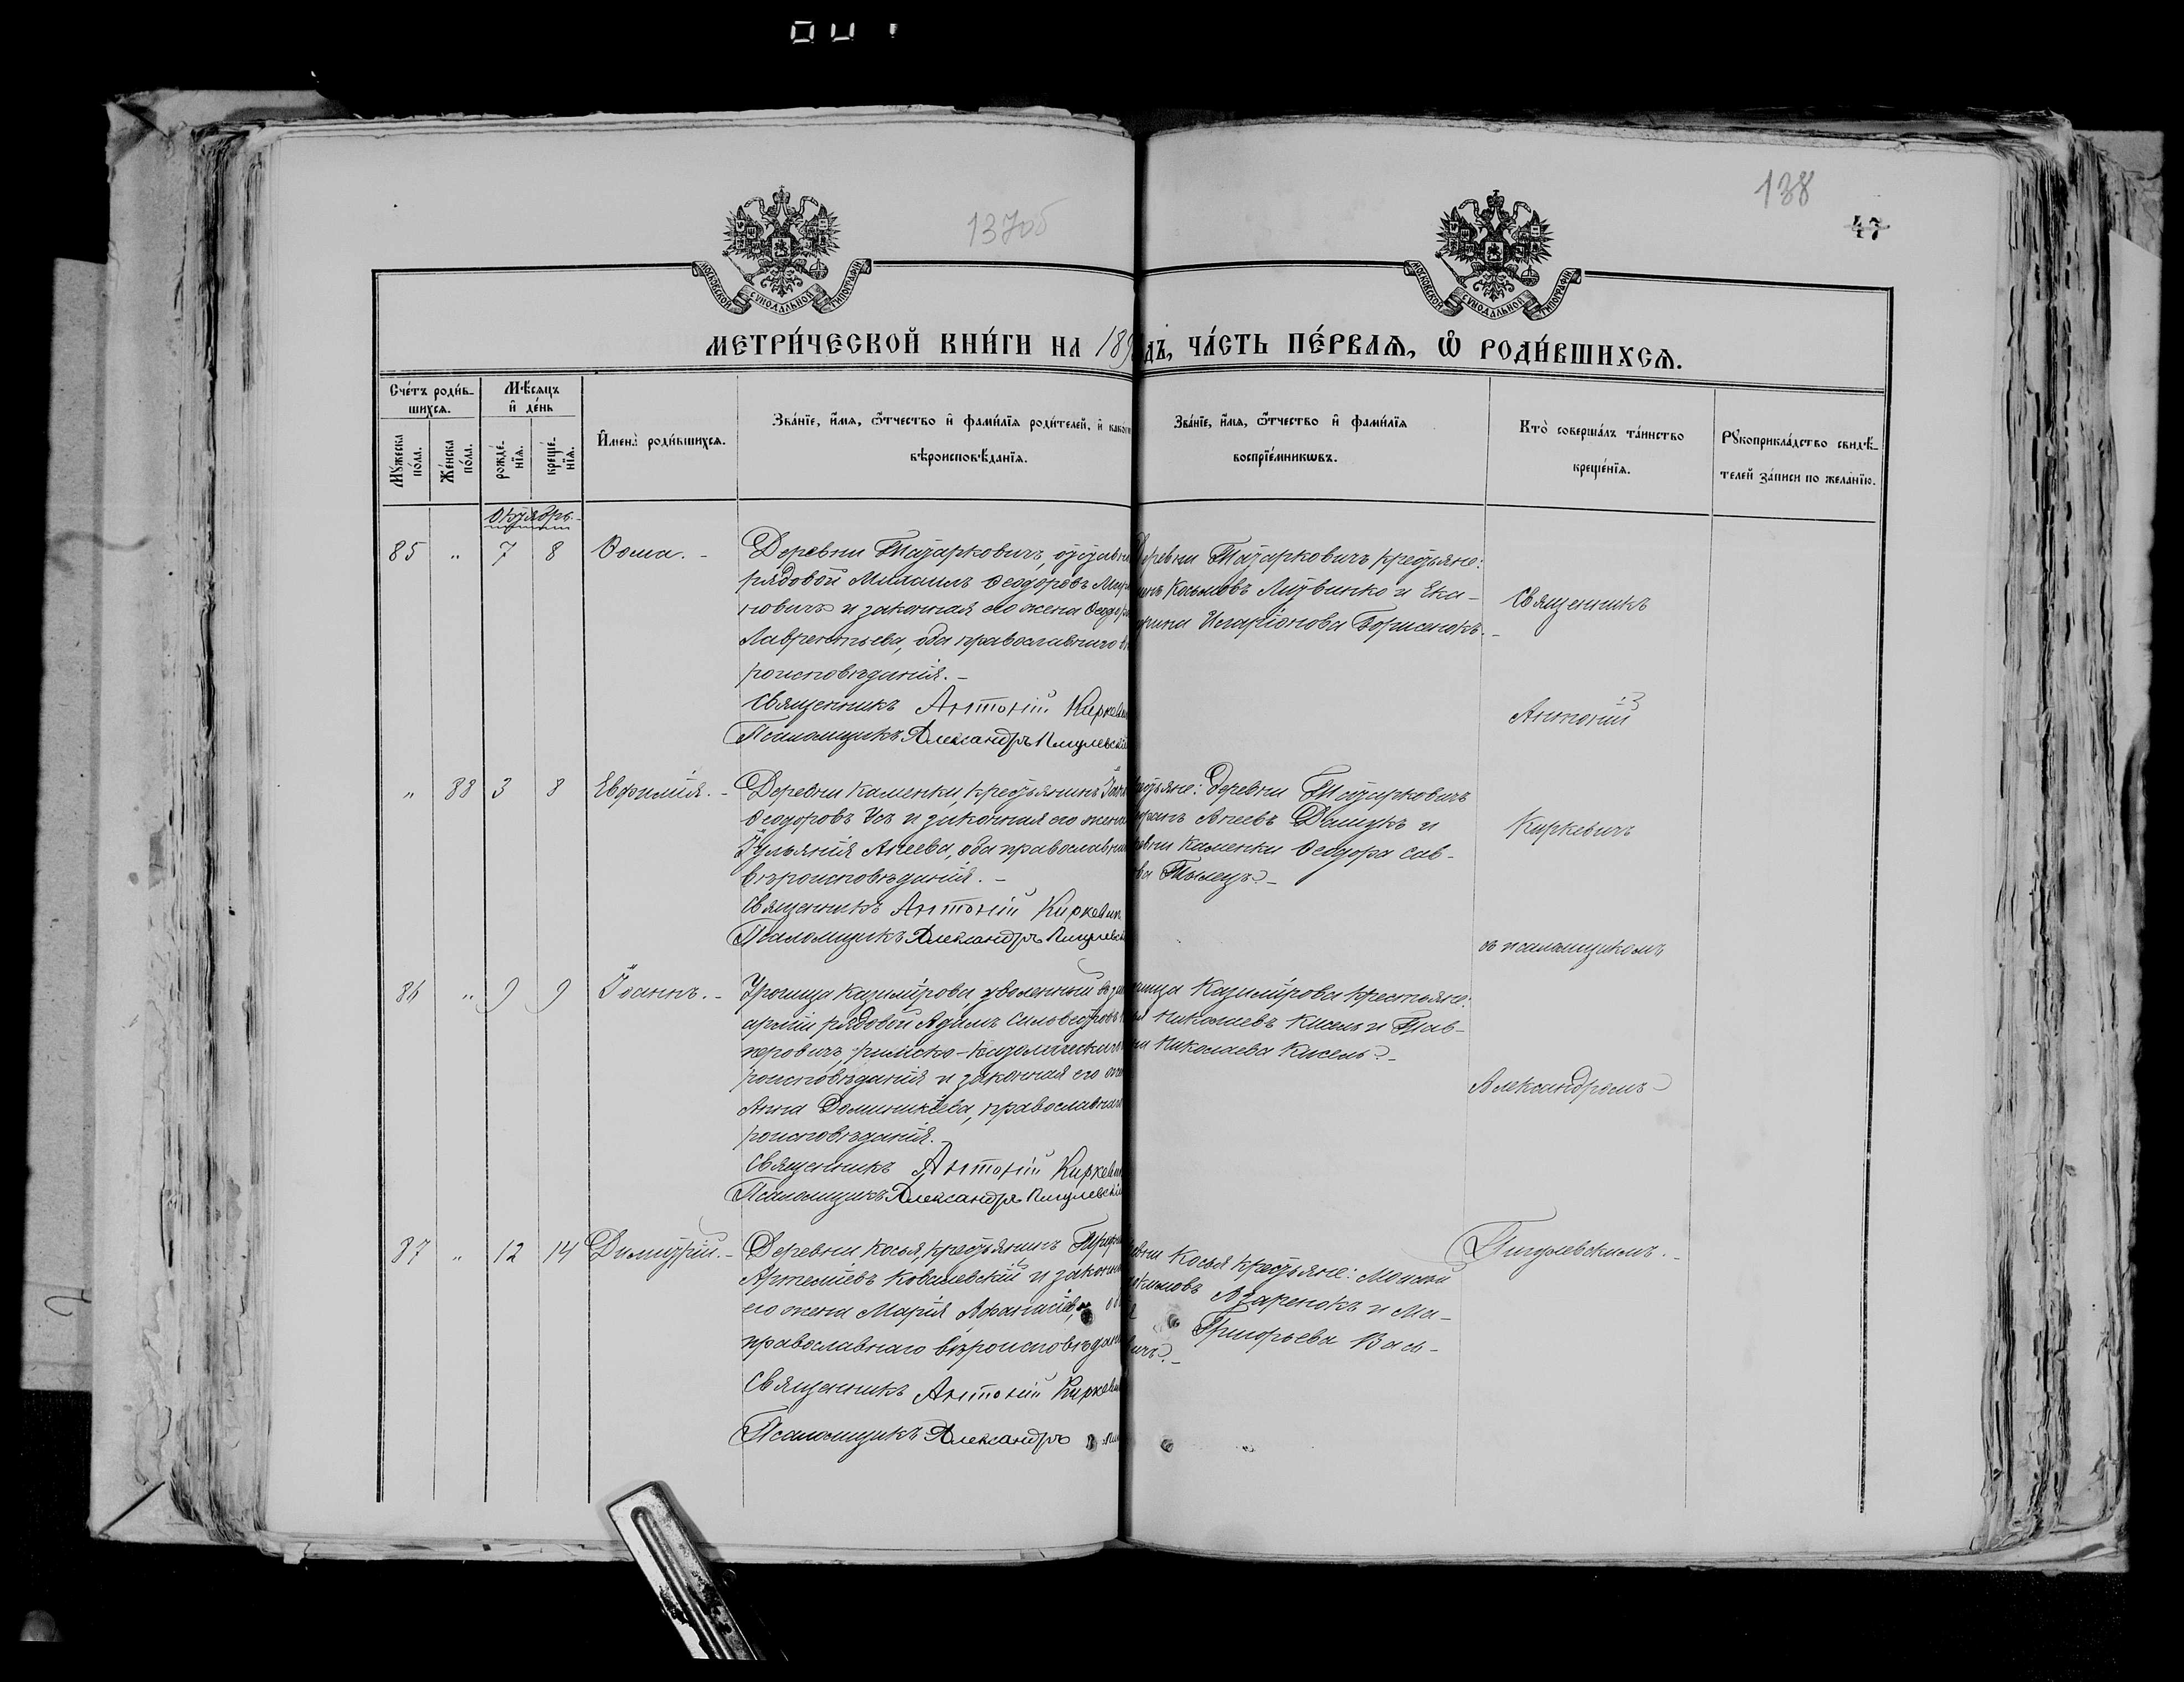 137об
138
47
МОСКОВСКОЙ СѴНОДАЛЬНОЙ ТИПОГРАФІИ
МОСКОВСКОЙ СѴНОДАЛЬНОЙ ТИПОГРАФІИ
МЕТРИ́ЧЕСКОЙ КНИ́ГИ НА 189
дъ, ЧА́СТЬ ПЕ́РВАЯ, Ѡ РОДИ́ВШИХСЯ.
Сче́тъ роди́вшихся.
Мꙋ́жеска по́ла.
Же́нска по́ла.
Мѣ́сяцъ и де́нь
рожде́нїя.
креще́нїя.
Имена̀ роди́вшихся.
Зва́нїе, и́мя, ѻ́тчество и фами́лїя роди́телей, и како́г
вѣроисповѣ́данїя.
Зва́нїе, и́мя, ѻ́тчество и фами́лїя
воспрїе́мникѡвъ.
Кто̀ соверша́лъ та́инство
креще́нїя.
Рꙋкоприкла́дство свидѣ́телей за́писи по жела́нїю.
Октябрь.
85 " 7 8 Ѳома. -
Деревни Татарковичъ, отставн
рядовой Михаилъ Ѳеодоровъ
новичъ и законная его жена Ѳеодор
Лаврентьева, оба православнаго вѣ
роисповѣданія. -
Священникъ Антоній Киркевич
Псаломщикъ Александръ Пигулевскій
Деревни Татарковичъ крестьяне:
Косьмовъ Литвинко и Ека-
ерина Иларіонова Борисенокъ. -
Священникъ
Антоній
" 88 3 8 Евфимія. -
Деревни Каменки, крестьянинъ Іоан
Ѳеодоровъ Усъ и законная его жена
Іульянія Агеева, оба православна
вѣроисповѣданія. -
Священникъ Антоній Киркевич
Псаломщикъ Александръ Пигулевскі
естьяне: деревни Татарковичъ
Агеевъ Дащукъ и
ревни Каменки Ѳеодора Сав-
ва Тылецъ. -
Киркевичъ
съ псаломщикомъ
86 " 9 9 Іоаннъ. -
Урочища Казимірова, уволенный въ зап
арміи рядовой Адамъ Сильвестровъ
неровичъ, римско-католическаго
роисповѣданія и законная его жен
Анна Доминикіева, православнаго
роисповѣданія. -
Священникъ Антоній Киркевич
Псаломщикъ Александръ Пигулевскій
чища Казимірова крестьяне:
Николаевъ Кисель и Пав-
ла Николаева Кисель. -
Александромъ
87 " 12 14 Димитрій. -
Деревни Косья, крестьянинъ
Артеміевъ Ковалевскій и законн
его жена Марія Афанасіева, об
православнаго вѣроисповѣдан
Священникъ Антоній Киркевич
Псаломщикъ Александръ
евни Косья крестьяне: Моисей
Азаренокъ и Ма-
Григорьева Вась-
ичъ. -
Пигулевскимъ. -